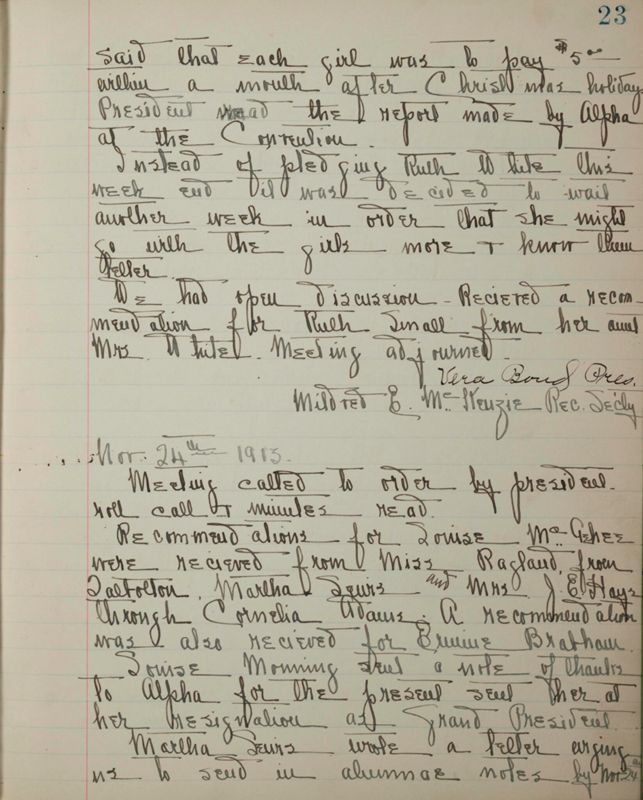 23
said that each girl was to pay $5 00
within a month after Christmas holiday
President read the report made by Alpha
at the Convention.
Instead of pledging Ruth White this
week end it was decided to wait
another week in order that she might
go with the girls more & know them
better.
We had open discussion - Recieved a recom-
mendation for Ruth Small from her aunt
Mrs. White. Meeting adjourned.
Vera Bond Pres.
Mildred E. McKenzie Rec. Sec'ty
Nov. 24th 1913.
Meeting called to order by president.
roll call & minutes read.
Recommendations for Louise McGehee
were recieved from Miss Ragland, from
Talbotton, Martha Sewrs and Mrs J. E. Hays
through Cornelia Adams. A recommendation
was also recieved for Ermine Brabham.
Louise Monning sent a note of thanks
to Alpha for the present sent her at
her resignation as Grand President.
Martha Sewrs wrote a letter urging
us to send in alumnae notes by Nov. 24